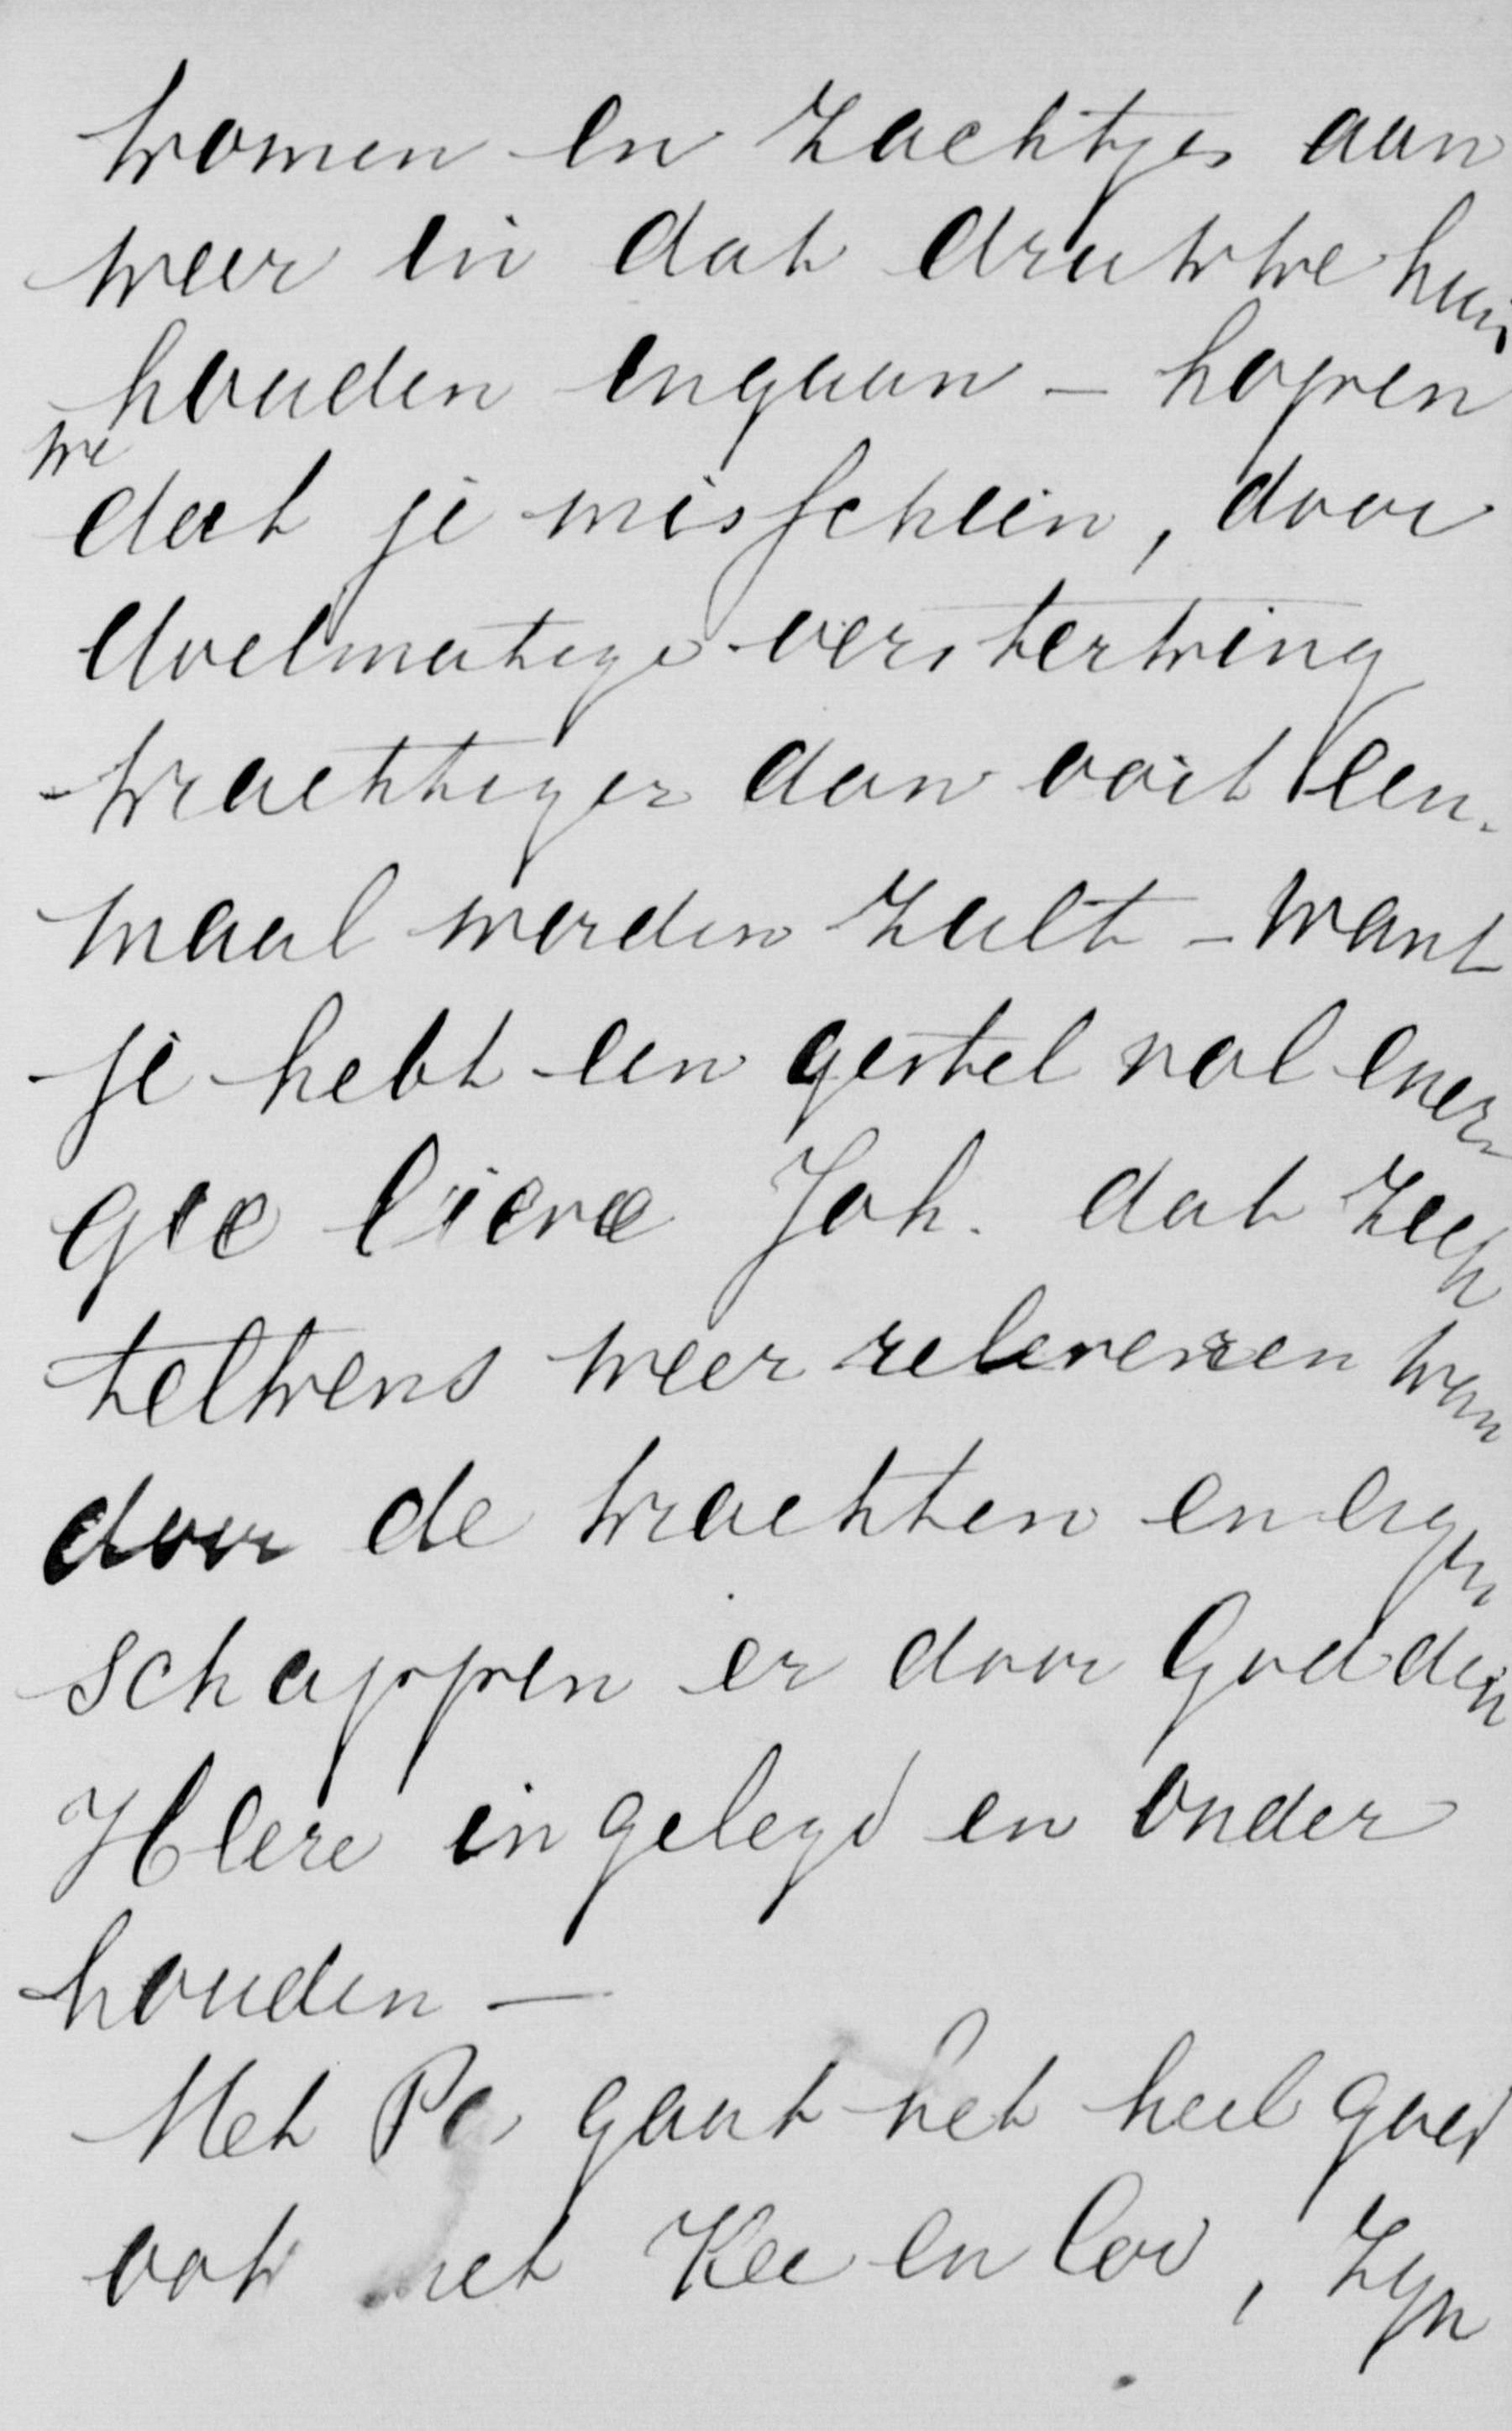 komen en zachtjes aan
weer in dat drukke huis
houden ingaan – hopen
we
dat je misschien, door
doelmatige versterking
krachtiger dan ooit een-
maal worden zult – want
je hebt een gestel vol ener
gie lieve Joh. dat zich
telkens weer releveren kan
door de krachten en eigen
schappen er door God den
Heere in gelegd en onder
houden –
Met Pa gaat het heel goed
ook met Kee en Cor, zyn